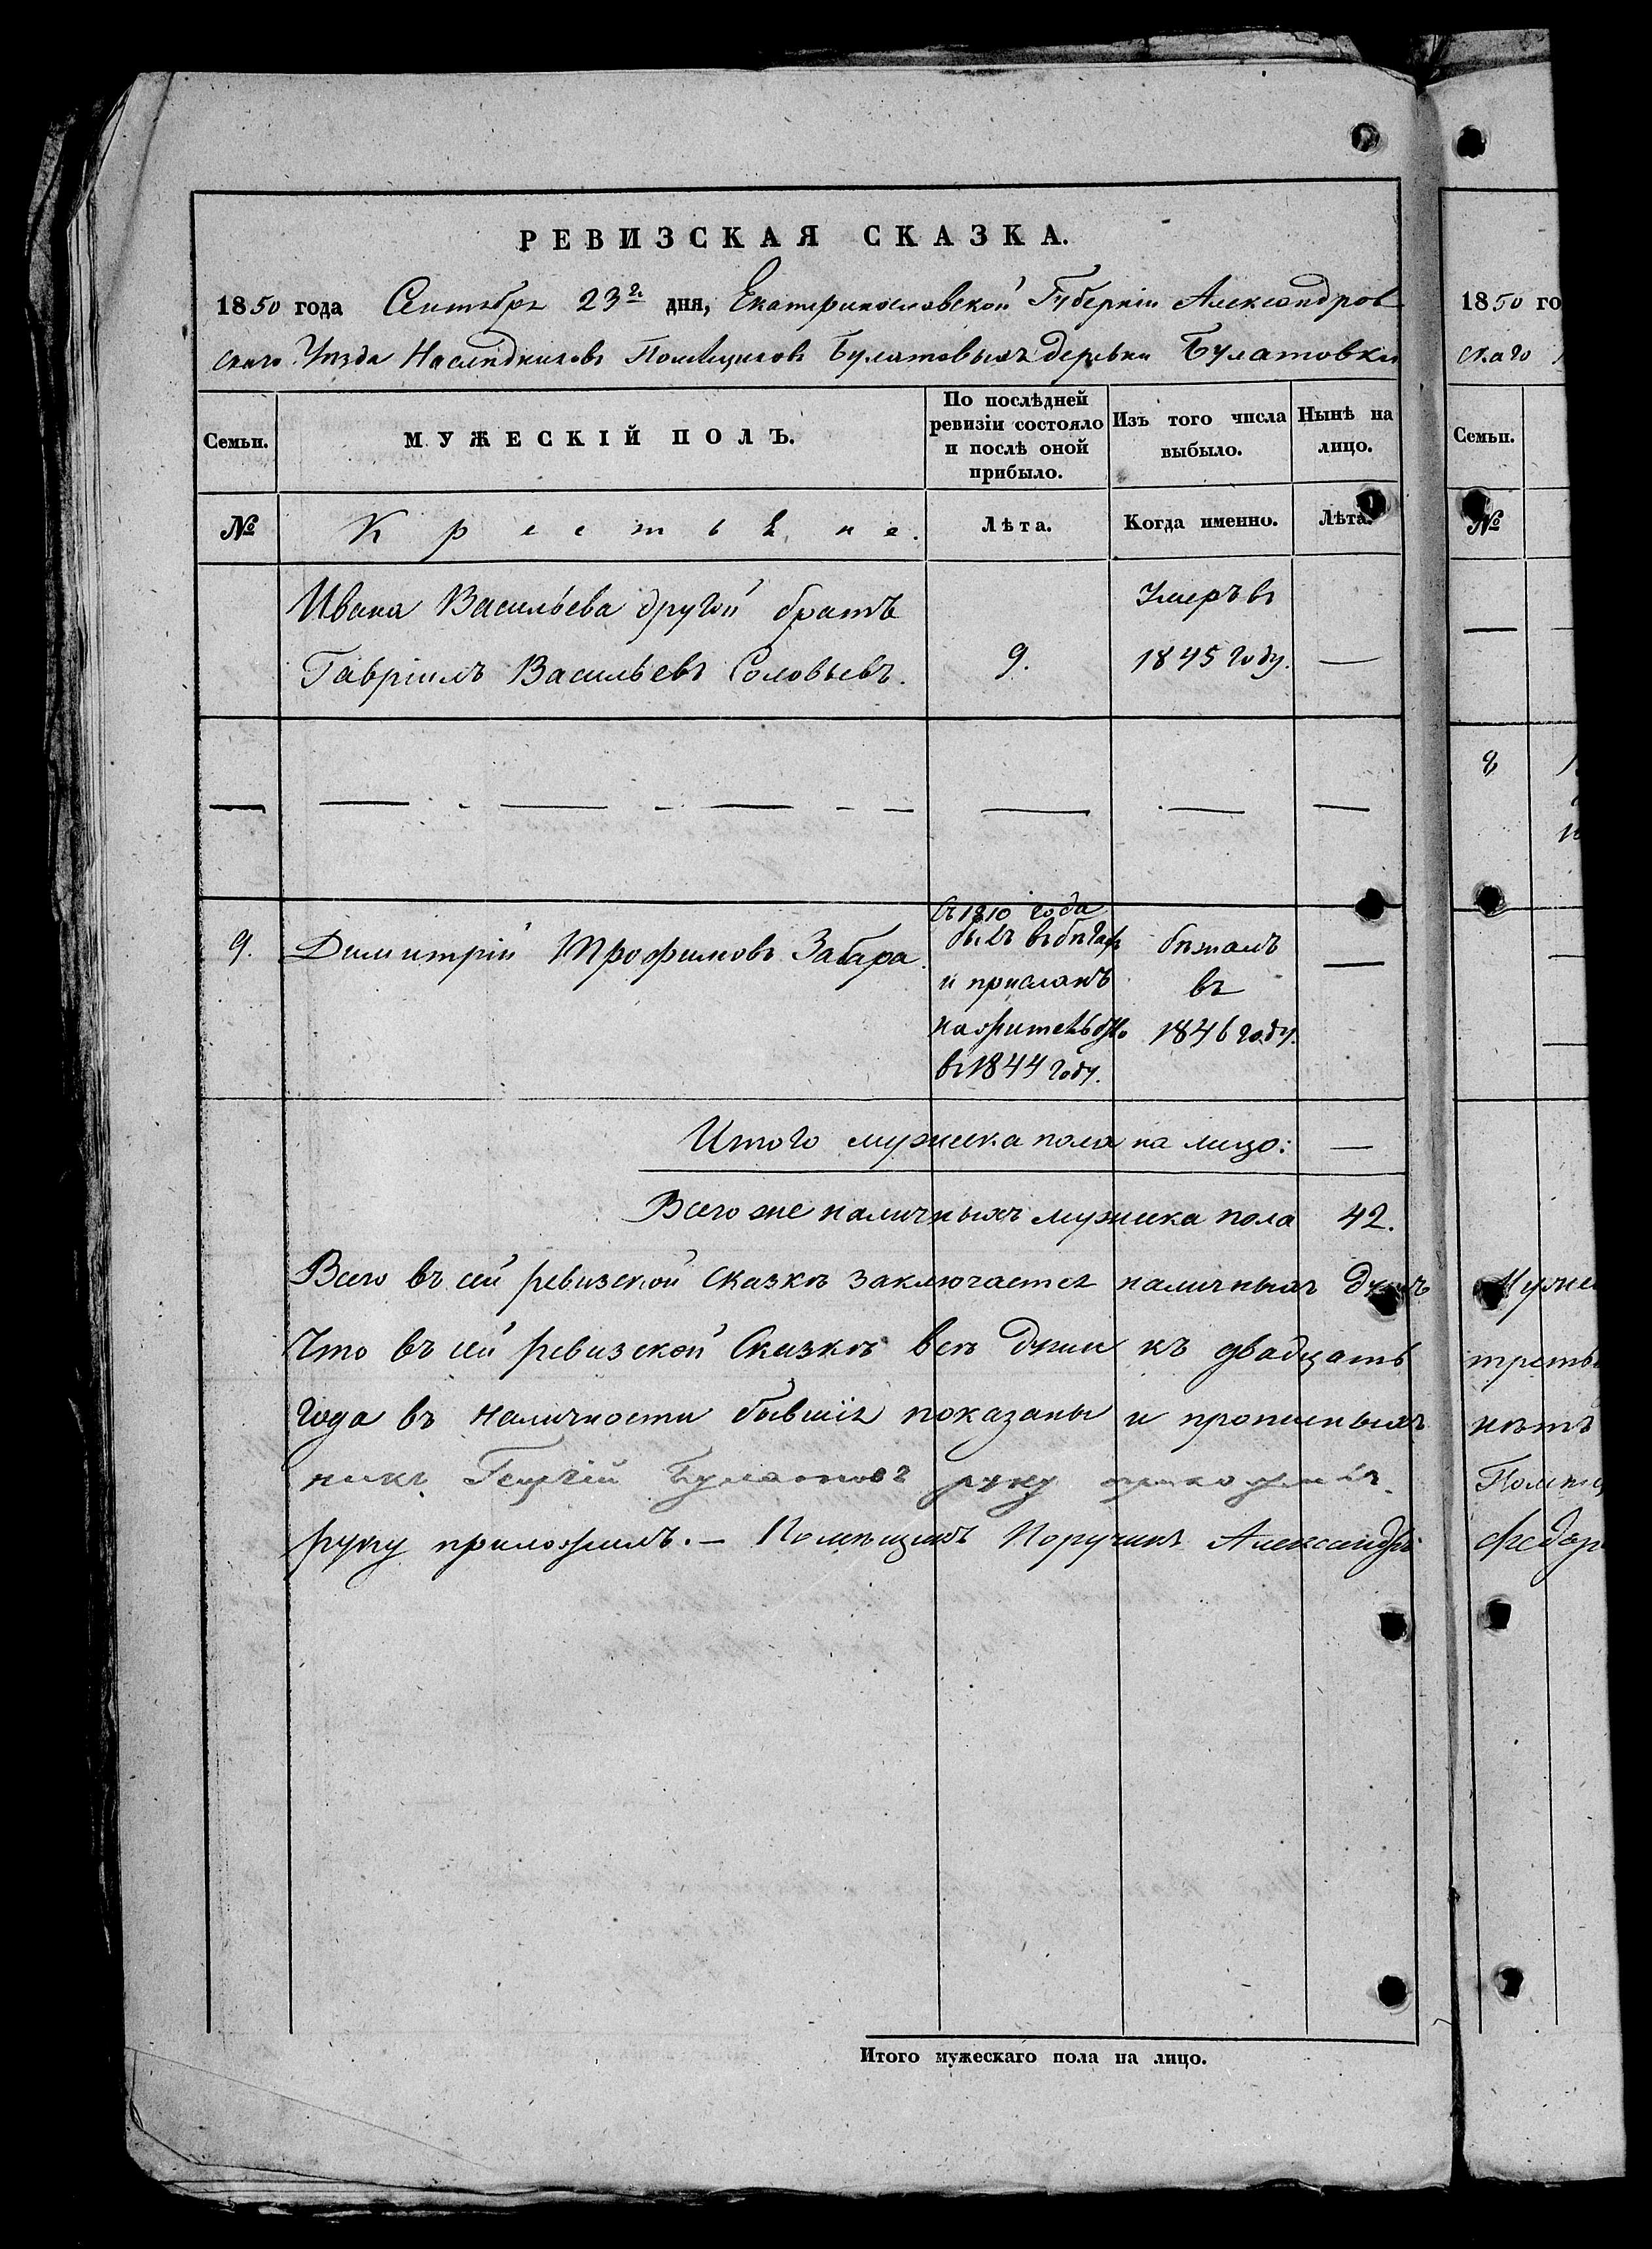 РЕВИЗСКАЯ СКАЗКА.
1850 года Сентября 23го дня, Екатеринославской Губерніи Александров
скаго Уѣзда Наслѣдниковъ Помѣщиковъ Булатовыхъ деревни Булатовки
Семьи.
МУЖЕСКІЙ ПОЛЪ.
По послѣдней ревизіи состояло и послѣ оной прибыло.
Изъ того числа выбыло.
Нынѣ на лицо.
№
Крестьяне.
Лѣта.
Когда именно.
Лѣта.
Ивана Васильева другой братъ
Гавріилъ Васильевъ Соловьевъ.
9.
Умеръ въ
1845 году.
—
9.
Димитрій Трофимовъ Забара.
Съ 1810 года
былъ въ бѣгахъ
и присланъ
на жительство
въ 1844 году.
бѣжалъ
въ
1846 году.
—
Итого мужеска пола на лицо: —
Всего же наличныхъ мужеска пола 42.
Всего въ сей ревизской сказкѣ заключается наличныхъ душъ
Что въ сей ревизской Сказкѣ всѣ души къ двадцать
года въ наличности бывшія показаны и прописныхъ
никъ Георгій Булатовъ руку приложилъ.
руку приложилъ. — Помѣщикъ Поручикъ Александръ
Итого мужескаго пола на лицо.
1850 го
скаго
Семьи.
№
8
Муже
треть
нѣтъ
Помѣщ
Федор